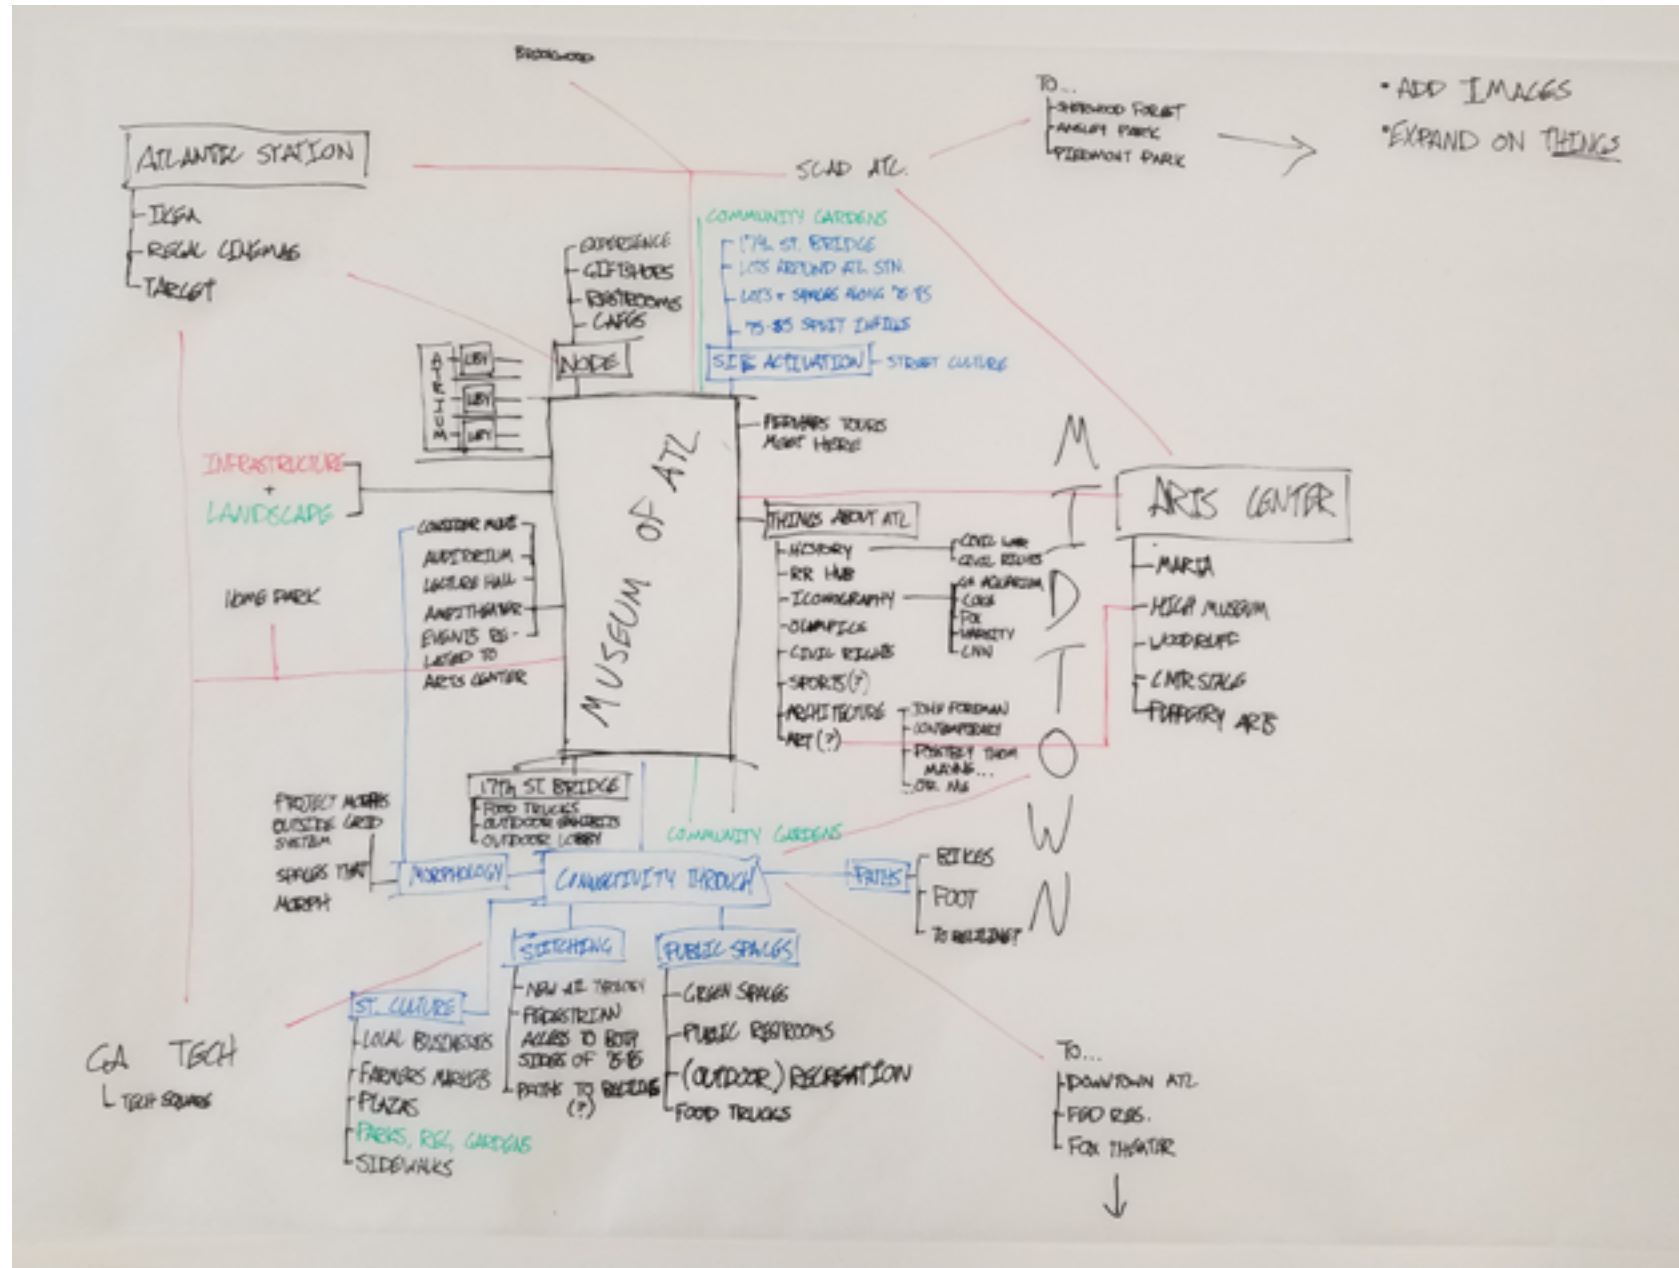 BROOKWOOD
TO...
SHERWOOD FOREST
ANSLEY PARK
PIEDMONT PARK
• ADD IMAGES
• EXPAND ON THINGS
ATLANTIC STATION
IKEA
REGAL CINEMAS
TARGET
SCAD ATL.
COMMUNITY GARDENS
17th ST. BRIDGE
LOTS AROUND ATL STN.
LOTS + SPACES ALONG 75-85
75-85 SPLIT INFILLS
SITE ACTIVATION
STREET CULTURE
EXPERIENCE
GIFTSHOPS
RESTROOMS
CAFES
NODE
ATRIUM
LBY
LBY
LBY
PERHAPS TOURS
MEET HERE
INFRASTRUCTURE
+
LANDSCAPE
MUSEUM OF ATL
CONSIDER
AUDITORIUM
LECTURE HALL
AMPITHEATER
EVENTS RE-
LATED TO
ARTS CENTER
HOME PARK
THINGS ABOUT ATL
HISTORY
CIVIL WAR
CIVIL RIGHTS
RR HUB
ICONOGRAPHY
GA AQUARIUM
COKE
FOX
VARSITY
CNN
OLYMPICS
CIVIL RIGHTS
SPORTS(?)
ARCHITECTURE
CONTEMPORARY
POSSIBLY THOM
MAYNE...
OR ME
ART(?)
MIDTOWN
ARTS CENTER
MARTA
HIGH MUSEUM
WOODRUFF
STAGE
PUPPETRY ARTS
17th ST. BRIDGE
FOOD TRUCKS
OUTDOOR EXHIBITS
OUTDOOR LOBBY
COMMUNITY GARDENS
PROJECT MORPHS
OUTSIDE GRID
SYSTEM
SPACES THAT
MORPH
MORPHOLOGY
CONNECTIVITY THROUGH
PATHS
BIKES
FOOT
TO BELTLINE?
STITCHING
NEW
PEDESTRIAN
ACCESS TO BOTH
SIDES OF 75-85
PATHS TO BELTLINE
(?)
PUBLIC SPACES
GREEN SPACES
PUBLIC RESTROOMS
(OUTDOOR) RECREATION
FOOD TRUCKS
ST. CULTURE
LOCAL BUSINESSES
FARMERS MARKETS
PLAZAS
PARKS, REC, GARDENS
SIDEWALKS
GA TECH
TECH SQUARE
TO...
DOWNTOWN ATL
FED RES.
FOX THEATER